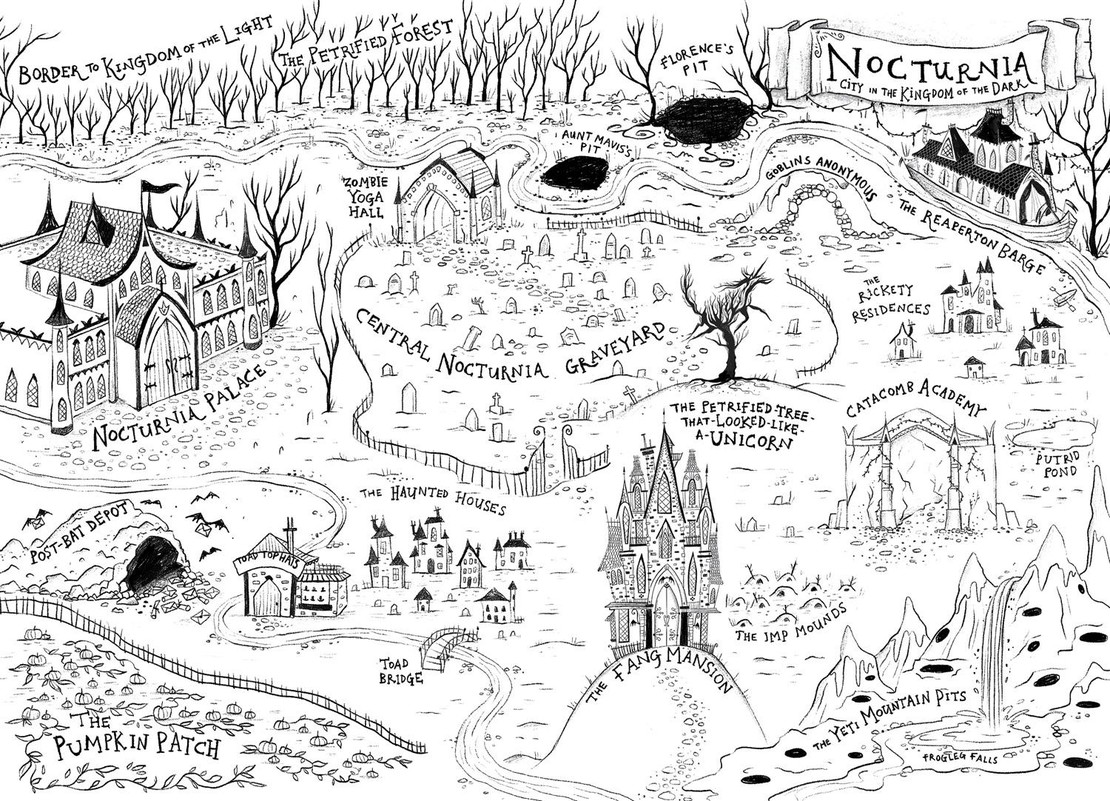 BORDER TO KINGDOM OF THE LIGHT
THE PETRIFIED FOREST
FLORENCE'S
PIT
NOCTURNIA
CITY IN THE KINGDOM OF THE DARK
AUNT MAVIS'S
PIT
ZOMBIE
YOGA
HALL
GOBLINS ANONYMOUS
THE REAPERTON BARGE
THE
RICKETY
RESIDENCES
CENTRAL NOCTURNIA GRAVEYARD
NOCTURNIA PALACE
THE PETRIFIED-TREE-
THAT-LOOKED-LIKE-
A-UNICORN
CATACOMB ACADEMY
PUTRID
POND
THE HAUNTED HOUSES
POST-BAT DEPOT
TOAD TOP HATS
TOAD
BRIDGE
THE IMP MOUNDS
THE FANG MANSION
THE YETI MOUNTAIN PITS
FROGLEG FALLS
THE
PUMPKIN PATCH